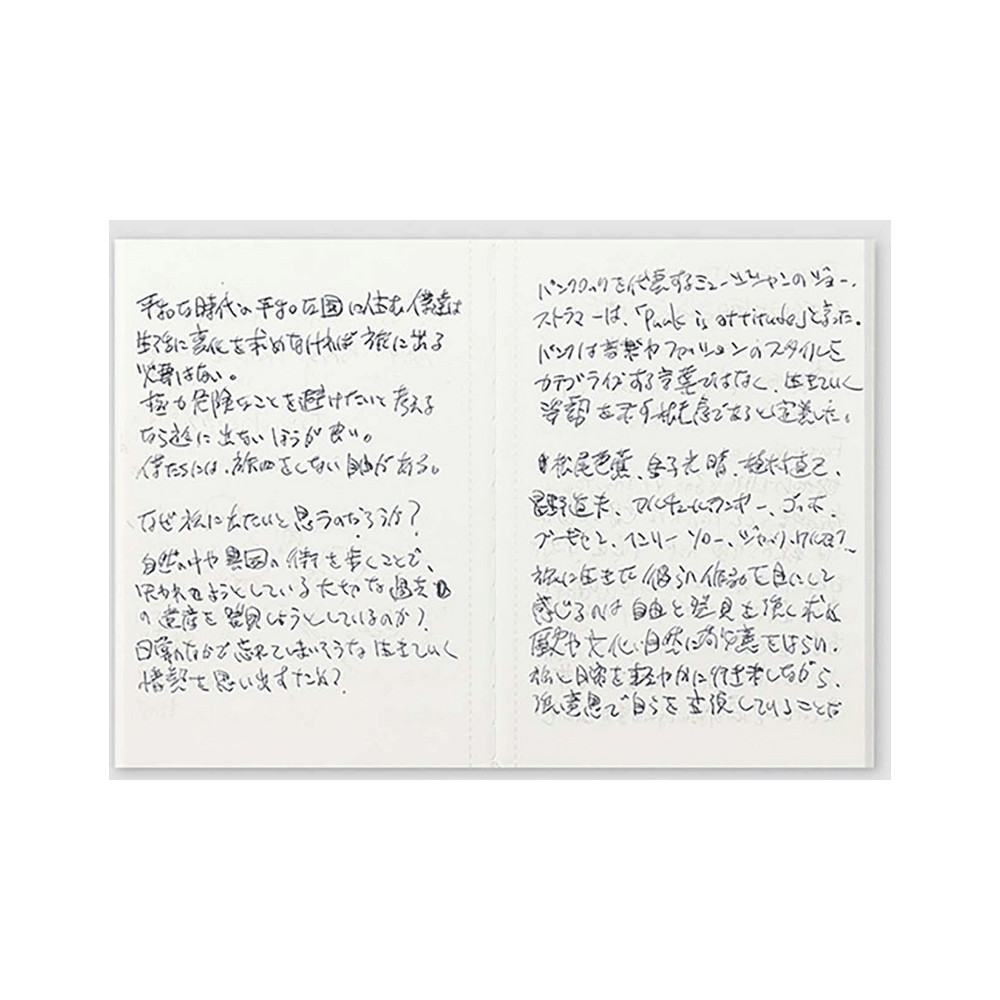 平和な時代の平和な国に住む僕達は
生活に変化を求めなければ旅に出る
必要はない。
極力危険なことを避けたいと考える
なら旅に出ないほうが良い。
僕たちには、旅をしない自由がある。
なぜ旅に出たいと思うのだろうか?
自然の中や異国の街を歩くことで、
失われようとしている大切な過去
の遺産を発見しようとしているのか?
日常のなかで忘れてしまいそうな生きていく
情熱を思い出すためか?
パンクロックを代表するミュージシャンのジョー・
ストラマーは、「Punk is attitude」と言った。
パンクは音楽やファッションのスタイルを
カテゴライズする言葉ではなく、生きていく
姿勢を示す概念であると定義した。
松尾芭蕉、金子光晴、植村直己、
星野道夫、アルチュール・ランボー、ゴッホ、
ゴーギャン、ヘンリー・ソロー、ジャック・ケルアック
旅に生きた彼らの作品を目にして
感じるのは自由と発見を強く求め
歴史や文化、自然に対し敬意をはらい、
旅と日常を軽やかに行き来しながら、
強い意思で自らを支援していることだ